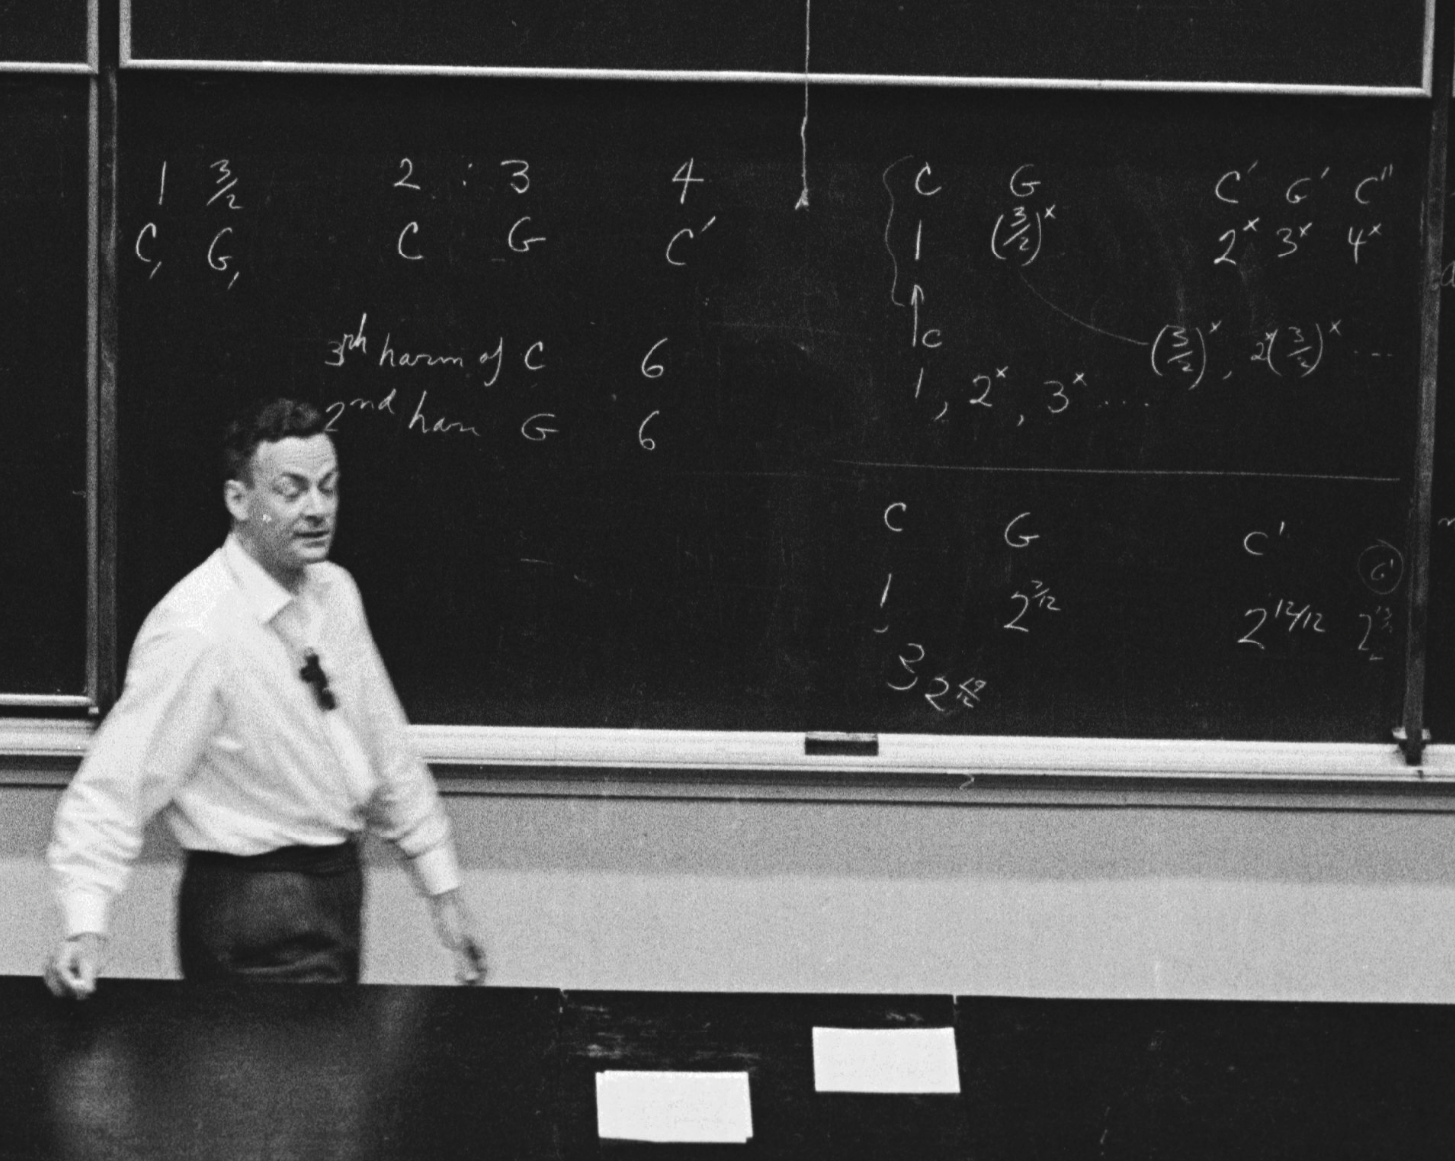 1 3/2 2 : 3 4
C, G, C G C'
3rh harm of C 6
2nd harm G 6
C G C' G' C"
1 (3/2)^x 2^x 3^x 4^x
C
(3/2)^x, 2^x(3/2)^x ...
1, 2^x, 3^x ....
C G C' G'
1 2^7/12 2^12/12
3 2^19/12